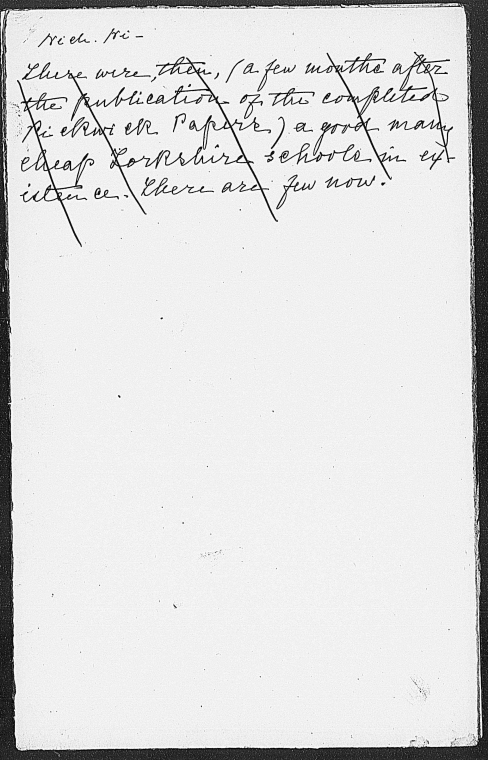 Nich. Ni-
There were, then, (a few months after
the publication of the completed
Pickwick Papers) a good many
cheap Yorkshire schools in ex-
istence. There are few now.